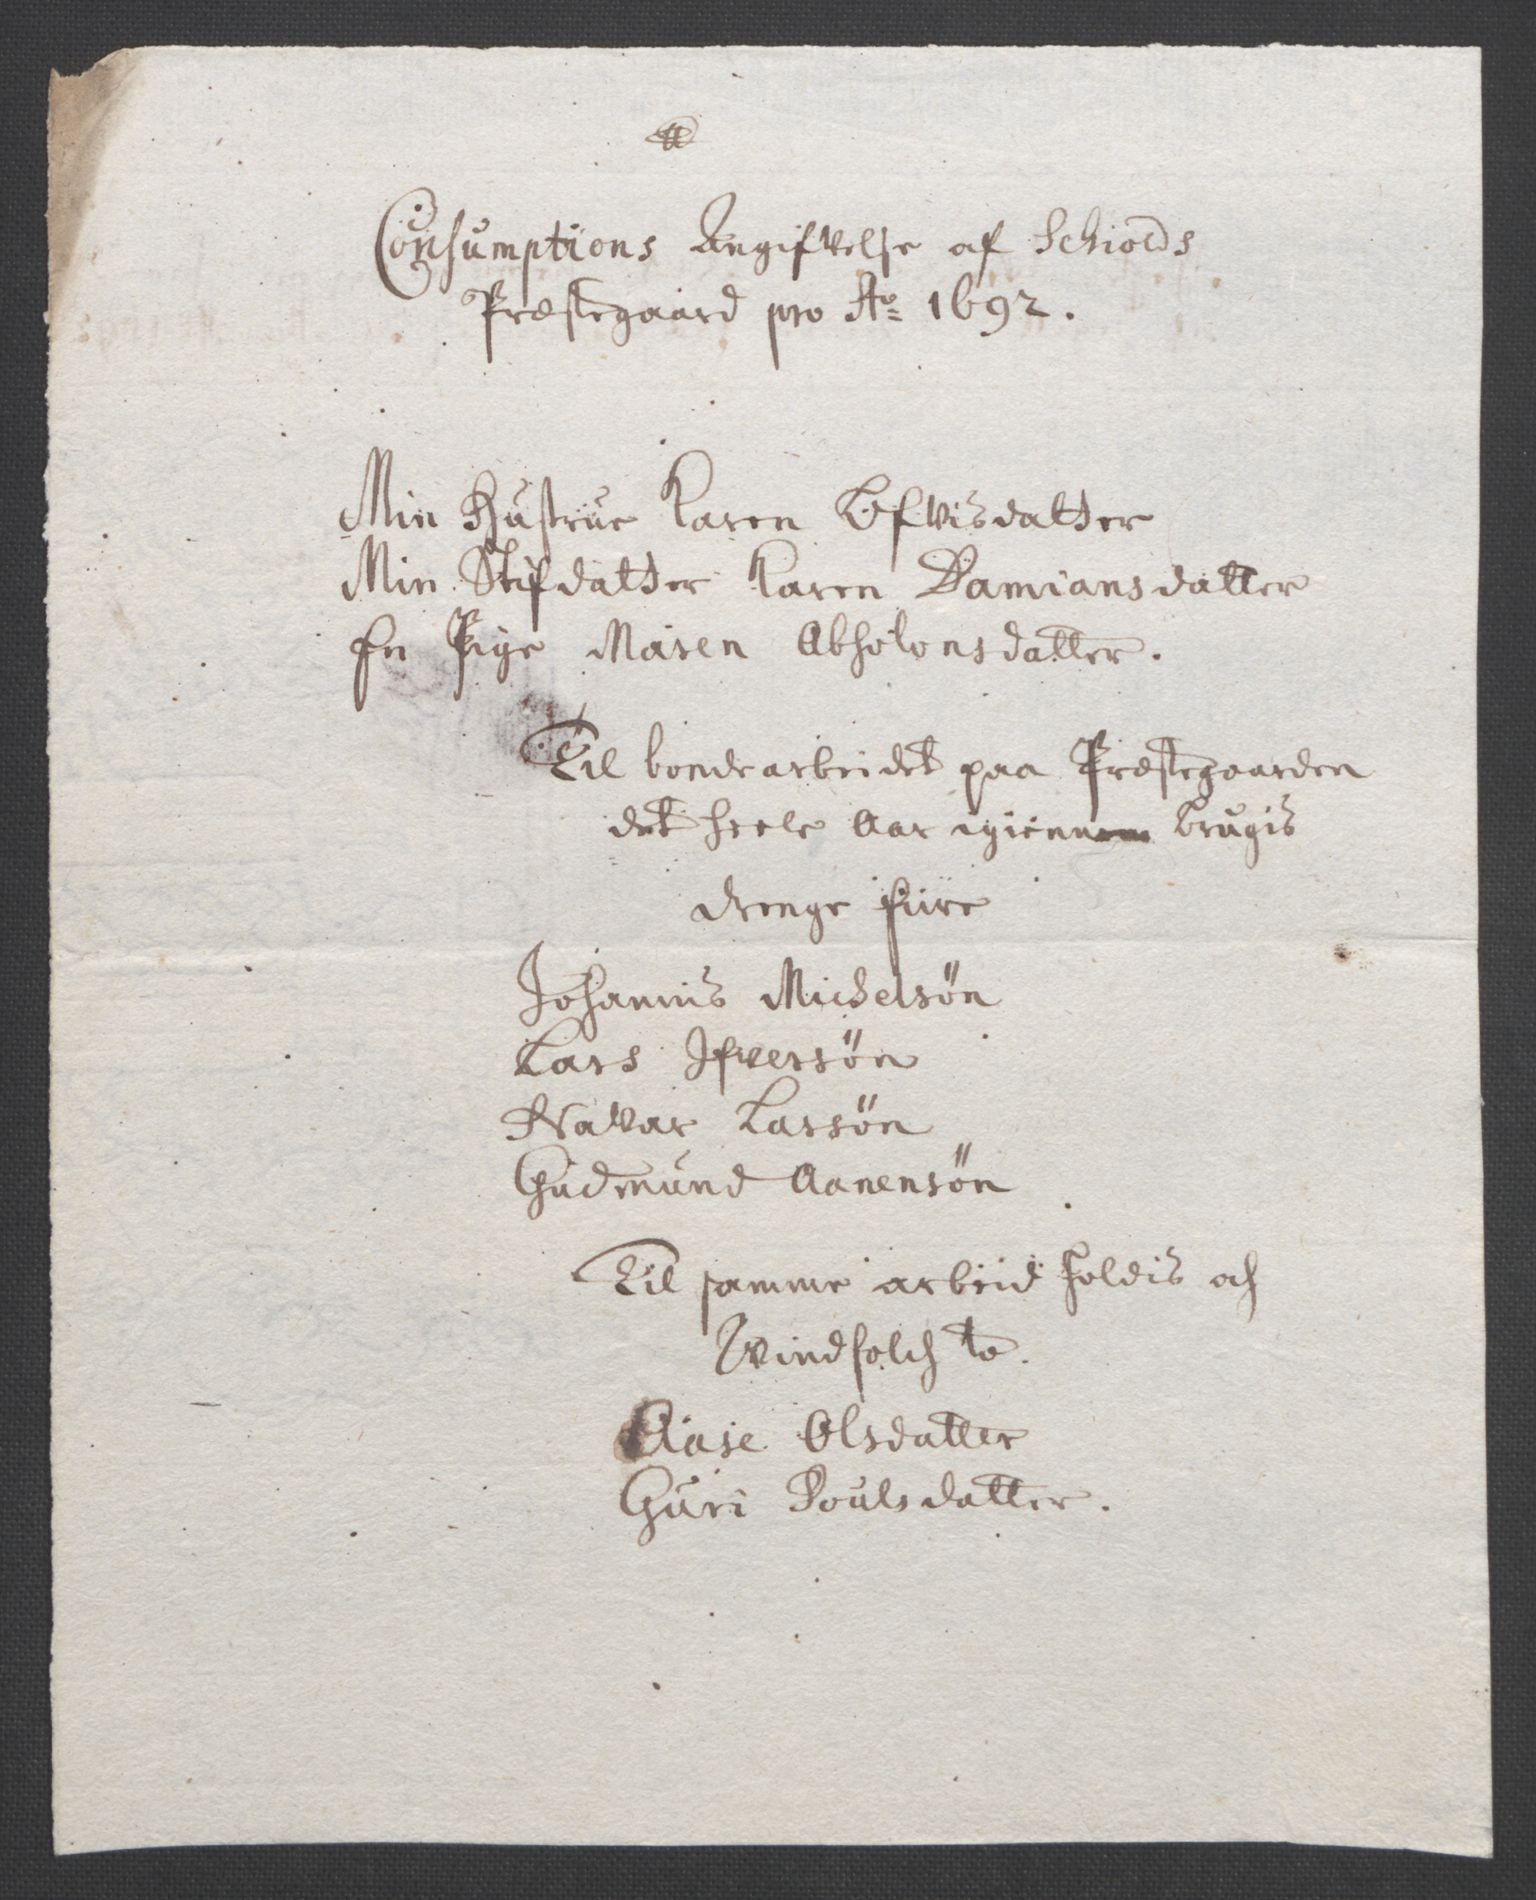 Consumptions Angifvelse af Schiolds
Præstegaard pro Ao 1692.
Min Hustrue Karen Lefvisdatter
Min Stifdatter Karen Damiansdatter
En Pige Maren Absolonsdatter.
Til bondearbeidet paa Præstegaarden
det heele Aar igiennem brugis
drenge fiire
Johannis Michelsön
Lars Ifversön
Halvar Larsön
Gudmund Aanensön
Til samme arbeid holdis och
Qvindfolch to.
Aase Olsdatter
Guri Poulsdatter.